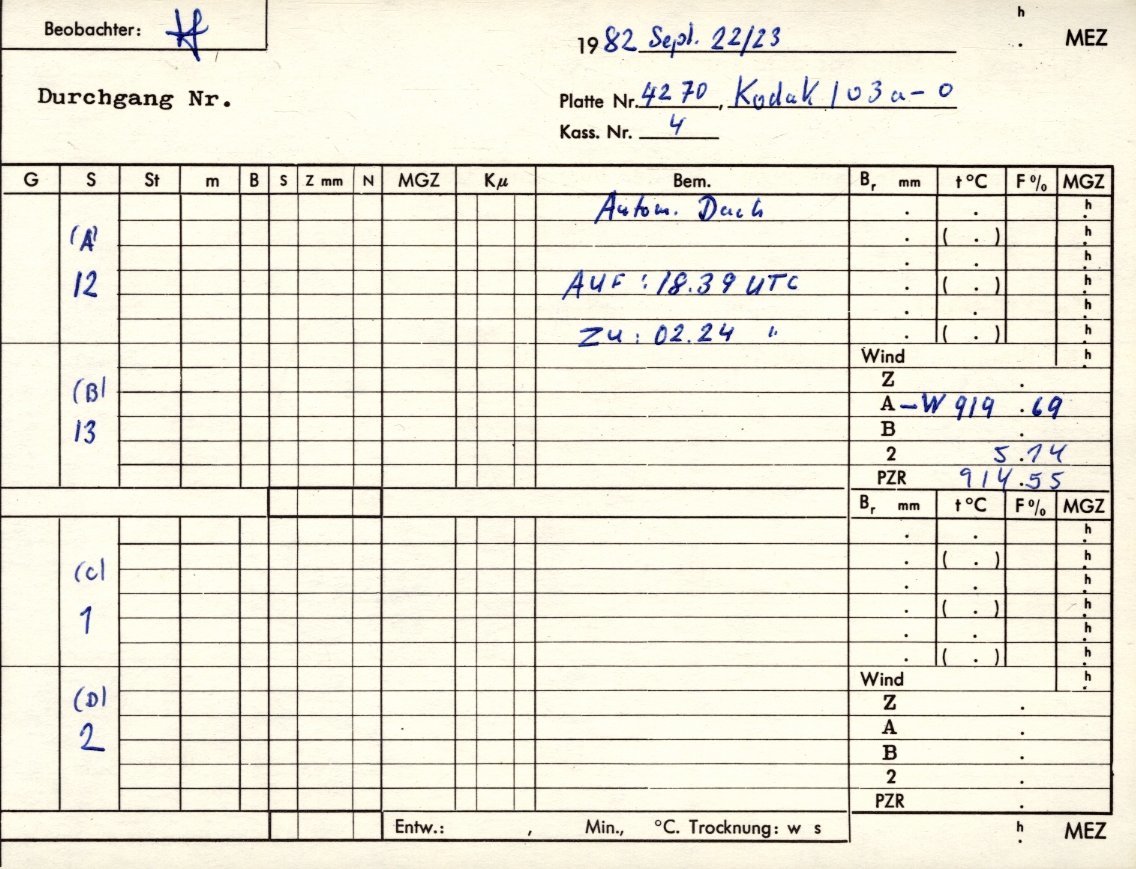 Beobachter:
1982 Sept. 22/23
h . MEZ
Durchgang Nr.
Platte Nr. 4270, Kodak 103a-O
Kass. Nr. 4
G S St m B S Z mm N MGZ Kµ Bem. Br mm t °C F % MGZ
Autom. Dach . . h
(A) . ( . ) h
. . h
12 AUF : 18.39 UTC . ( . ) h
. . h
ZU : 02.24 " . ( . ) h
Wind h
(B) Z .
A -W 919 .69
13 B .
2 5.14
PZR 914.55
Br mm t °C F % MGZ
. . h
(C) . ( . ) h
. . h
1 . ( . ) h
. . h
. ( . ) h
Wind h
(D) Z .
A .
2 B .
2 .
PZR .
Entw.: , Min., °C. Trocknung: w s h . MEZ